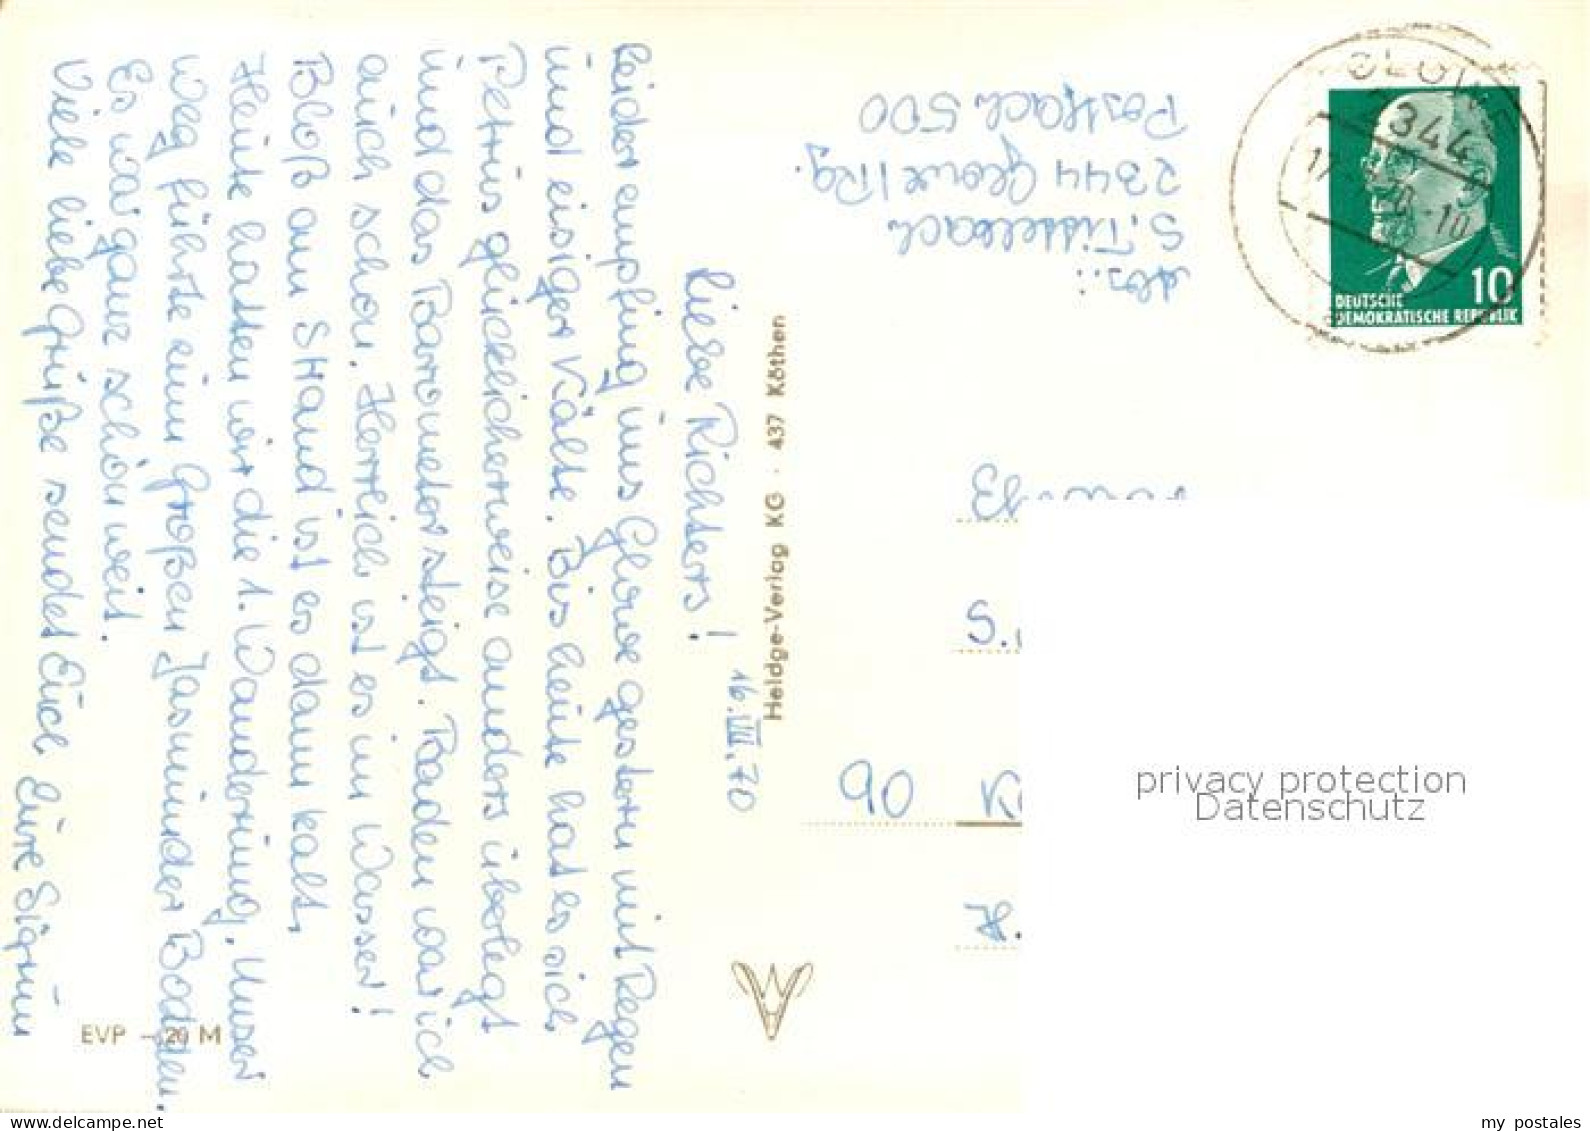 16.VIII.70
Liebe Richters!
Leider empfing uns Glowe gestern mit Regen
und eisiger Kälte. Bis heute hat es sich
Petrus glücklicherweise anders überlegt
und das Barometer steigt. Baden war ich
auch schon. Herrlich ist es im Wasser!
Bloß am Strand ist es dann kalt.
Heute hatten wir die 1. Wanderung. Unser
Weg führte zum Großen Jasmunder Bodden.
Es war ganz schön weit.
Viele liebe Grüße sendet Euch Eure Sigrun
EVP -20 M
Heldge-Verlag KG · 437 Köthen
Abs.:
S. Tittelbach
2344 Glowe/Rg.
Postfach 500
GLOWE
10
DEUTSCHE
DEMOKRATISCHE REPUBLIK
S.
privacy protection
Datenschutz
my postales
www.delcampe.net